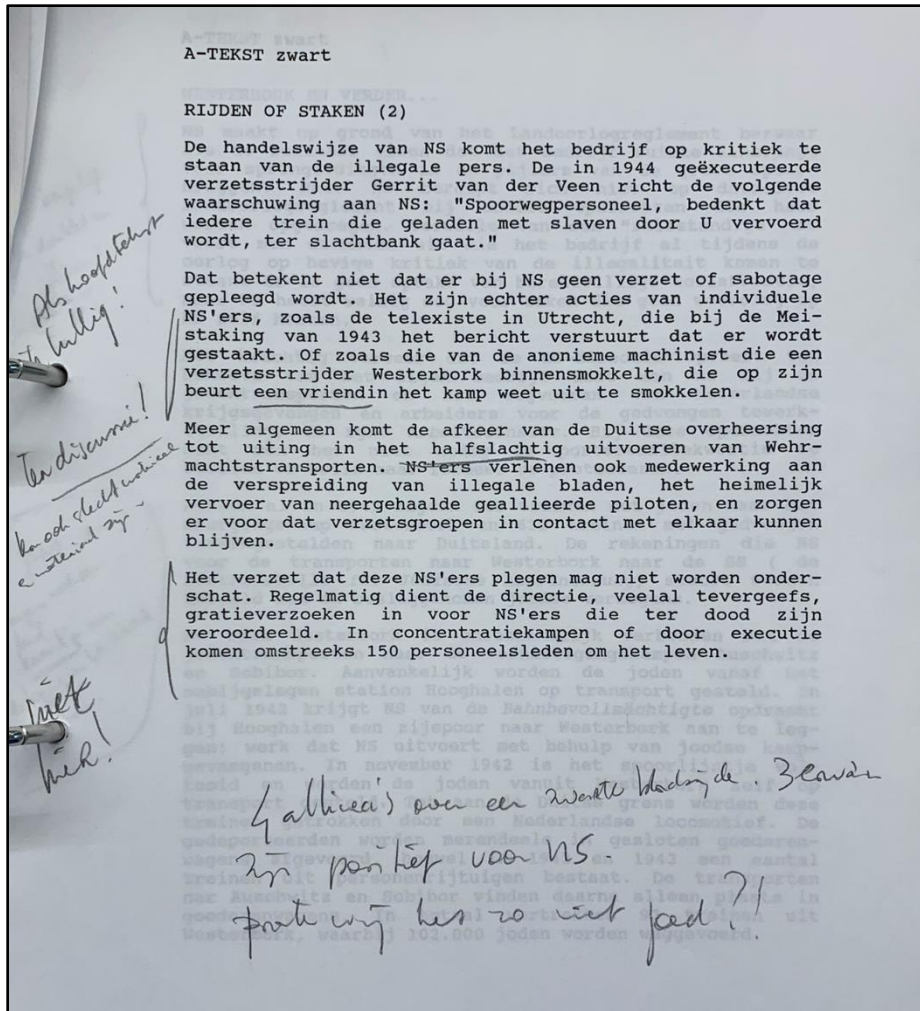 A-TEKST zwart
RIJDEN OF STAKEN (2)
De handelswijze van NS komt het bedrijf op kritiek te
staan van de illegale pers. De in 1944 geëxecuteerde
verzetsstrijder Gerrit van der Veen richt de volgende
waarschuwing aan NS: "Spoorwegpersoneel, bedenkt dat
iedere trein die geladen met slaven door U vervoerd
wordt, ter slachtbank gaat."
Dat betekent niet dat er bij NS geen verzet of sabotage
gepleegd wordt. Het zijn echter acties van individuele
NS'ers, zoals de telexiste in Utrecht, die bij de Mei-
staking van 1943 het bericht verstuurt dat er wordt
gestaakt. Of zoals die van de anonieme machinist die een
verzetsstrijder Westerbork binnensmokkelt, die op zijn
beurt een vriendin het kamp weet uit te smokkelen.
Meer algemeen komt de afkeer van de Duitse overheersing
tot uiting in het halfslachtig uitvoeren van Wehr-
machtstransporten. NS'ers verlenen ook medewerking aan
de verspreiding van illegale bladen, het heimelijk
vervoer van neergehaalde geallieerde piloten, en zorgen
er voor dat verzetsgroepen in contact met elkaar kunnen
blijven.
Het verzet dat deze NS'ers plegen mag niet worden onder-
schat. Regelmatig dient de directie, veelal tevergeefs,
gratieverzoeken in voor NS'ers die ter dood zijn
veroordeeld. In concentratiekampen of door executie
komen omstreeks 150 personeelsleden om het leven.
Als hoofdtekst
te lullig!
Ter discussie!
kan ook slecht
materiaal zijn
niet
hier!
4 alinea's over een zwarte bladzijde. 3 ervan
zijn positief voor NS.
praten wij het zo niet goed?!